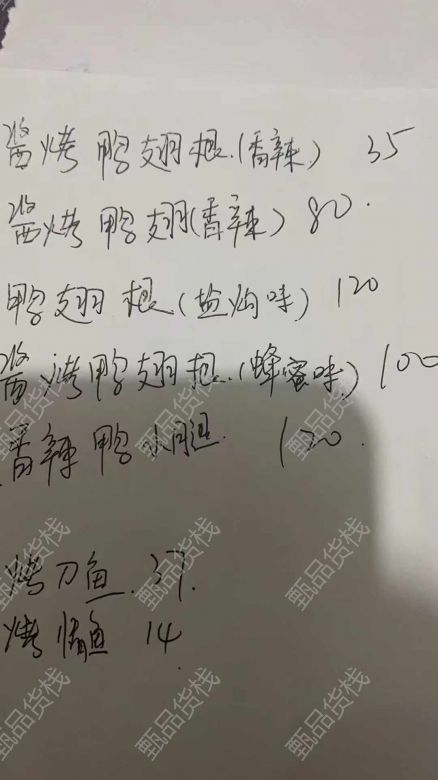 酱烤鸭翅根(香辣) 35
酱烤鸭翅(香辣) 80.
鸭翅根(盐焗味) 120
酱烤鸭翅根(蜂蜜味) 100
香辣鸭小腿 120.
烤刀鱼.37.
烤鱼 14
甄品货栈
甄品货栈
甄品货栈
甄品货栈
甄品货栈
甄品货栈
甄品货栈
甄品货栈
甄品货栈
甄品货栈